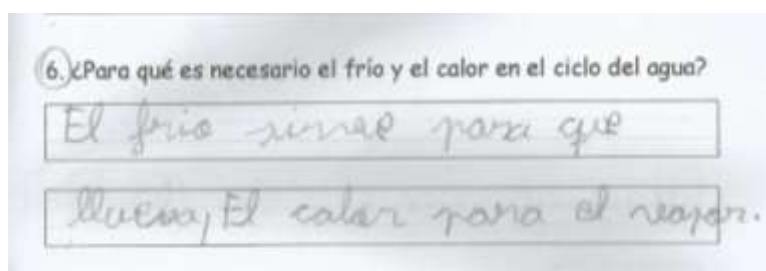 6. ¿Para qué es necesario el frío y el calor en el ciclo del agua?
El frio sirve para que
llueva, El calor para el vapor.